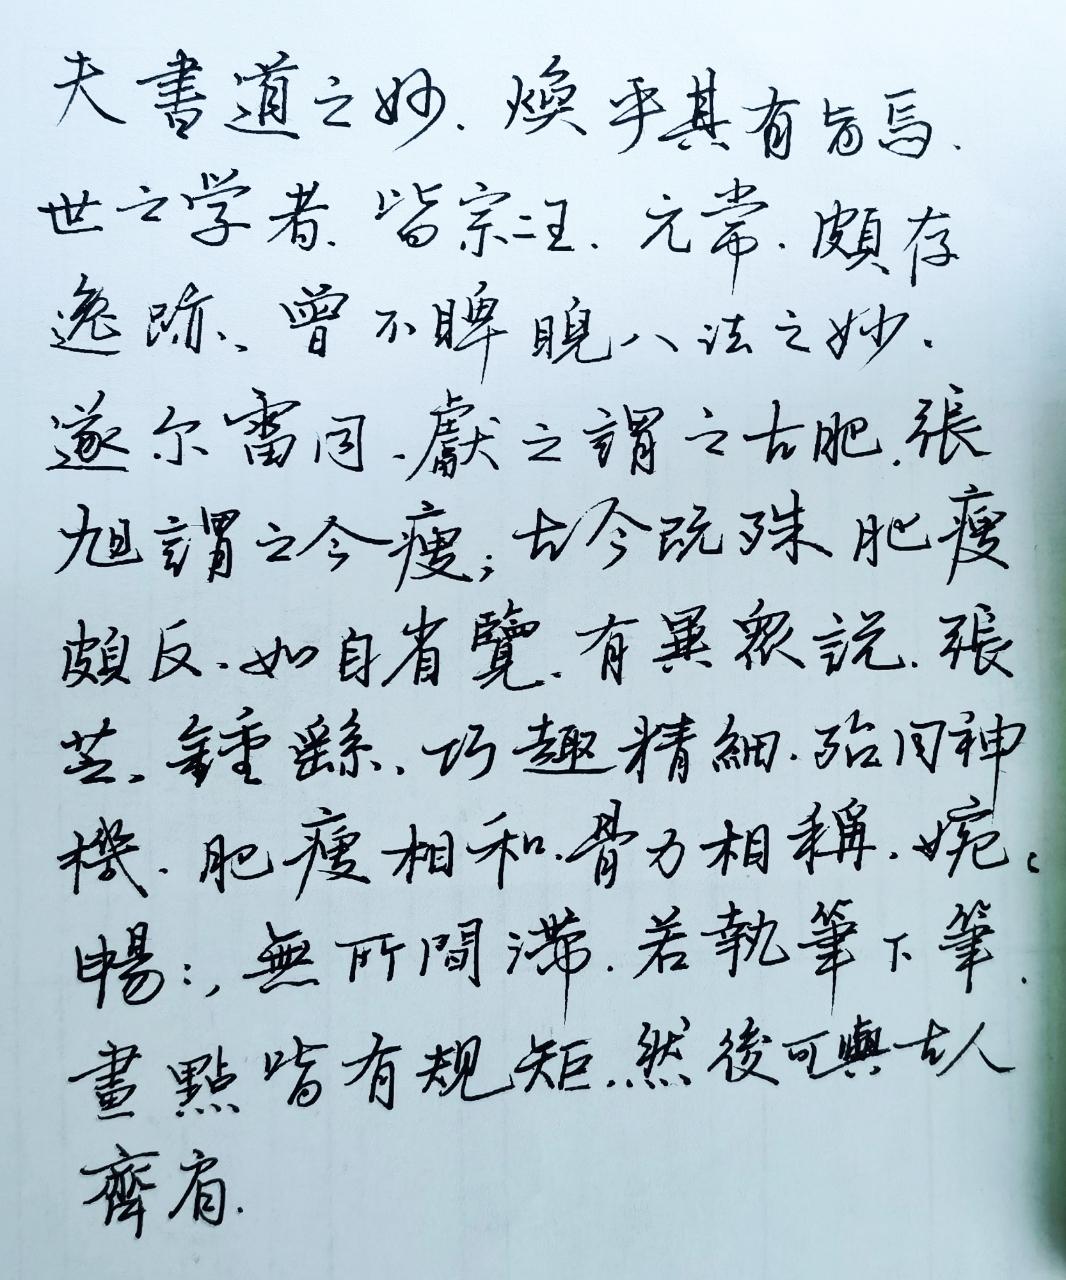 夫書道之妙.煥乎其有旨焉.
世之学者.皆宗二王.元常.頗存
逸跡、曾不睥睨八法之妙.
遂尔雷同.獻之謂之古肥.張
旭謂之今瘦;古今既殊肥瘦
頗反.如自省覽.有異眾説.張
芝.鍾繇.巧趣精細.殆同神
機.肥瘦相和.骨力相稱.婉:
暢:,無所間滞.若執筆下筆.
畫點皆有規矩.然後可與古人
齊肩.